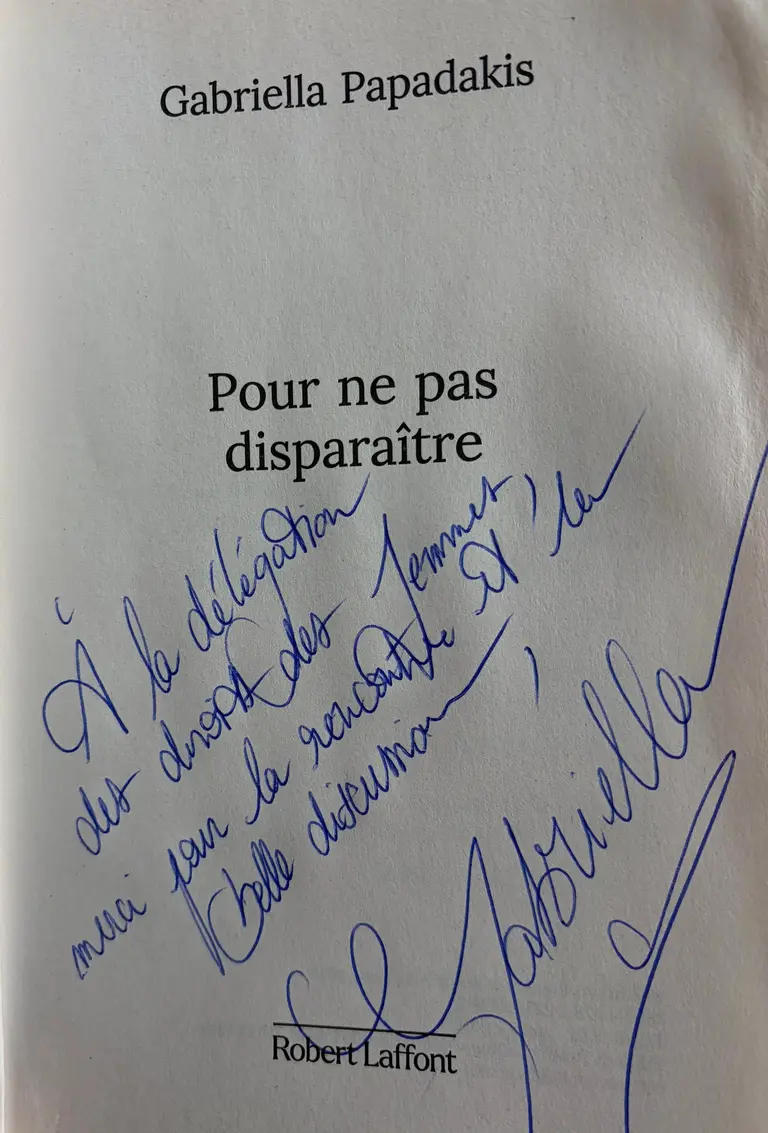 Gabriella Papadakis
Pour ne pas
disparaître
À la délégation
des droits des femmes,
merci pour la rencontre et la
belle discussion,
Gabriella
Robert Laffont